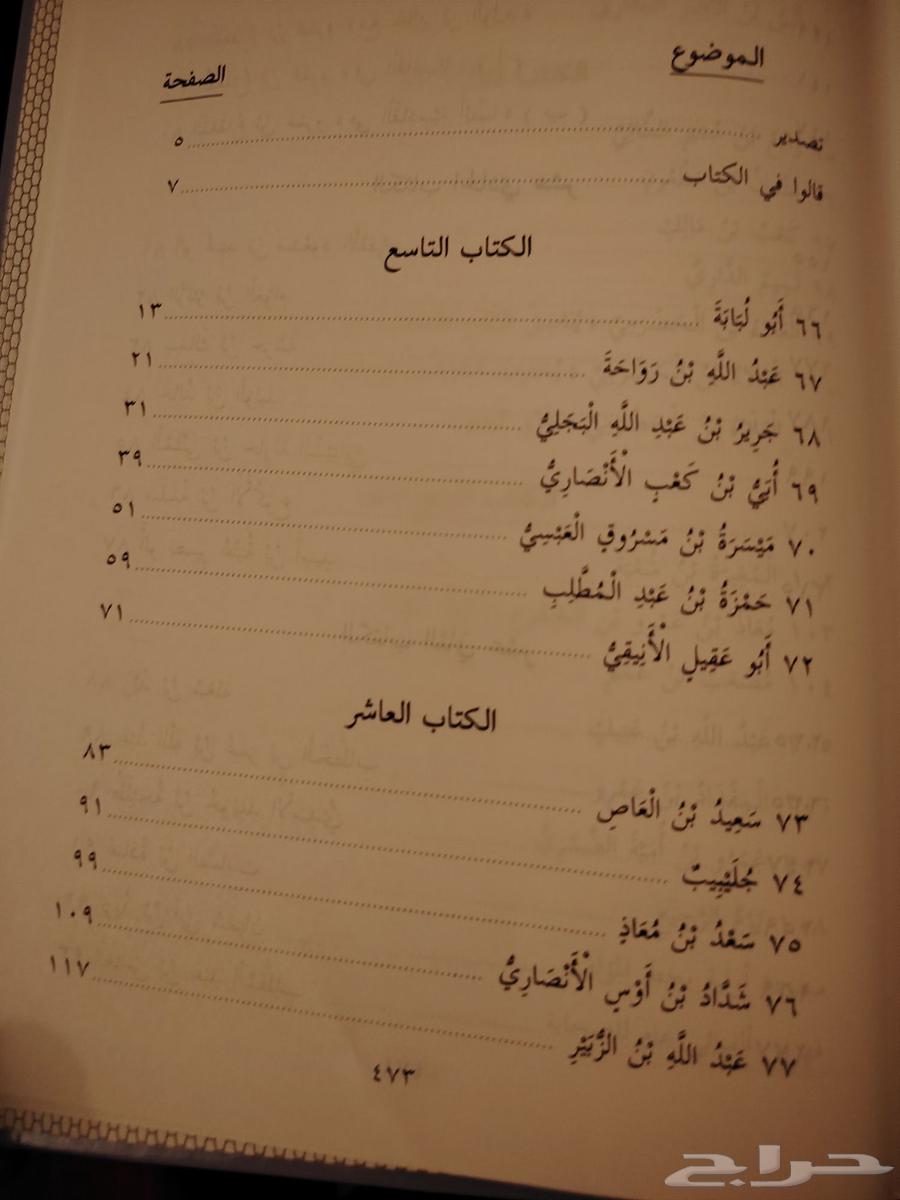 الموضوع الصفحة
تصدير ........ ٥
قالوا في الكتاب ........ ٧
الكتاب التاسع
٦٦ أَبُو لُبَابَةَ ........ ١٣
٦٧ عَبْدُ اللَّهِ بْنُ رَوَاحَةَ ........ ٢١
٦٨ جَرِيرُ بْنُ عَبْدِ اللَّهِ الْبَجَلِيُّ ........ ٣١
٦٩ أُبَيُّ بْنُ كَعْبٍ الْأَنْصَارِيُّ ........ ٣٩
٧٠ مَيْسَرَةُ بْنُ مَسْرُوقٍ الْعَبْسِيُّ ........ ٥١
٧١ حَمْزَةُ بْنُ عَبْدِ الْمُطَّلِبِ ........ ٥٩
٧٢ أَبُو عَقِيلٍ الْأَنِيقِيُّ ........ ٧١
الكتاب العاشر
٧٣ سَعِيدُ بْنُ الْعَاصِ ........ ٨٣
٧٤ جُلَيْبِيبٌ ........ ٩١
٧٥ سَعْدُ بْنُ مُعَاذٍ ........ ٩٩
٧٦ شَدَّادُ بْنُ أَوْسٍ الْأَنْصَارِيُّ ........ ١٠٩
٧٧ عَبْدُ اللَّهِ بْنُ الزُّبَيْرِ ........ ١١٧
٤٧٣
حراج